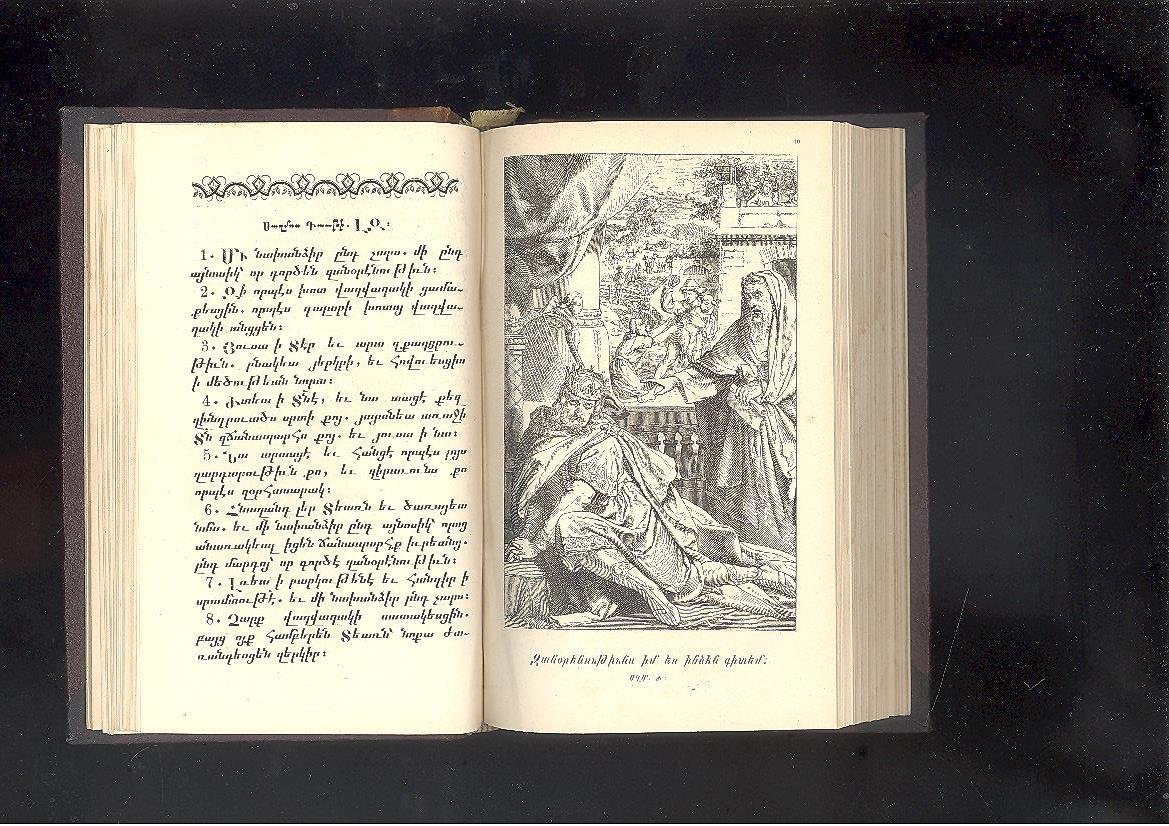 Սաղմոս Դաւթի. ԼԶ։
1. Մի նախանձիր ընդ չարս. մի ընդ
այնոսիկ՝ որ գործեն զանօրէնութիւն։
2. Զի որպէս խոտ վաղվաղակի ցամա-
քեսցին. որպէս դալարի խոտոյ վաղվա-
ղակի անցցեն։
3. Յուսա ի Տէր եւ արա զքաղցրու-
թիւն. բնակեա յերկրի, եւ հովուեսցիս
ի մեծութեան նորա։
4. Խնդրեա ի Տեառնէ, եւ նա տացէ քեզ
զխնդրուածս սրտի քոյ. յայտնեա առաջի
Տն զճանապարհս քոյ. եւ յուսա ի նա։
5. Նա արասցէ եւ հանցէ որպէս լոյս
զարդարութիւն քո, եւ զիրաւունս քո
որպէս զօրհասարակ։
6. Հնազանդ լեր Տեառն եւ ծառայեա
նմա. եւ մի նախանձիր ընդ այնոսիկ՝ որոց
անառակեալ իցեն ճանապարհք իւրեանց.
ընդ մարդոյ՝ որ գործէ զանօրէնութիւն։
7. Լռեա ի բարկութենէ եւ հանդիր ի
սրտմտութէ. եւ մի նախանձիր ընդ չարս։
8. Չարք վաղվաղակի սատակեսցին.
բայց ոյք համբերեն Տեառն՝ նոքա ժա-
ռանգեսցեն զերկիր։
Զանօրէնութիւնս իմ ես ինձէն գիտեմ։
ՍՂՄ. Ծ.